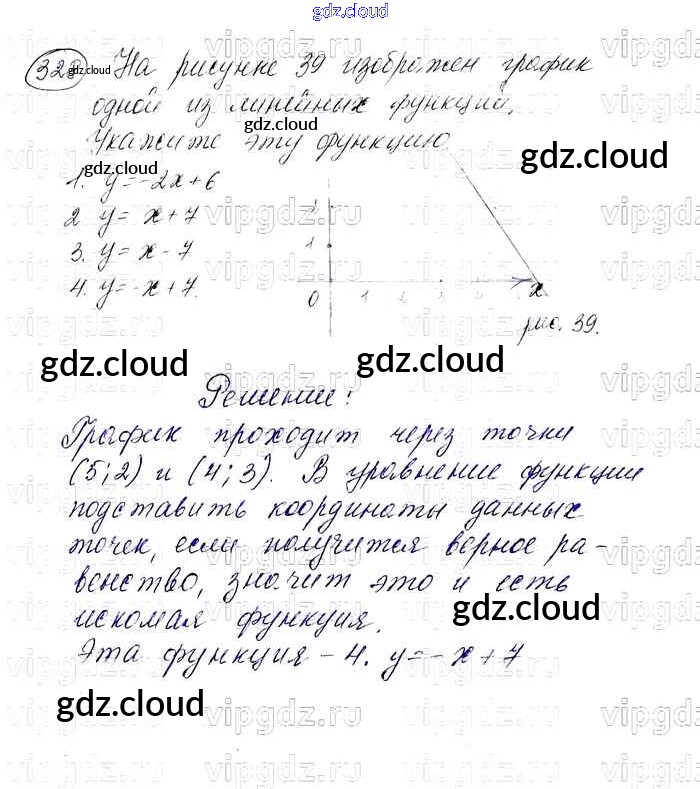 gdz.cloud
328 На рисунке 39 изображен график
одной из линейных функций.
Укажите эту функцию
1. y=-2x+6
2 y= x+7
3. y= x-7
4. y=-x+7.
1
0 1 2 x
рис. 39.
Решение:
График проходит через точки
(5;2) и (4;3). В уравнение функции
подставить координаты данных
точек, если получится верное ра-
венство, значит это и есть
искомая функция.
Эта функция - 4. y=-x+7
gdz.cloud
gdz.cloud
gdz.cloud
gdz.cloud
gdz.cloud
gdz.cloud
gdz.cloud
gdz.cloud
vipgdz.ru